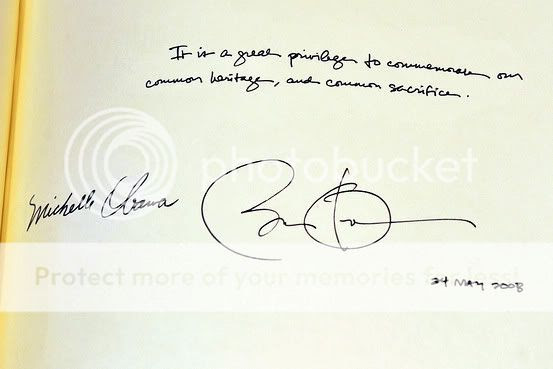 It is a great privilege to commemorate our
common heritage, and common sacrifice.
photobucket
Michelle Obama
Protect more of your memories for less!
24 MAY 2008